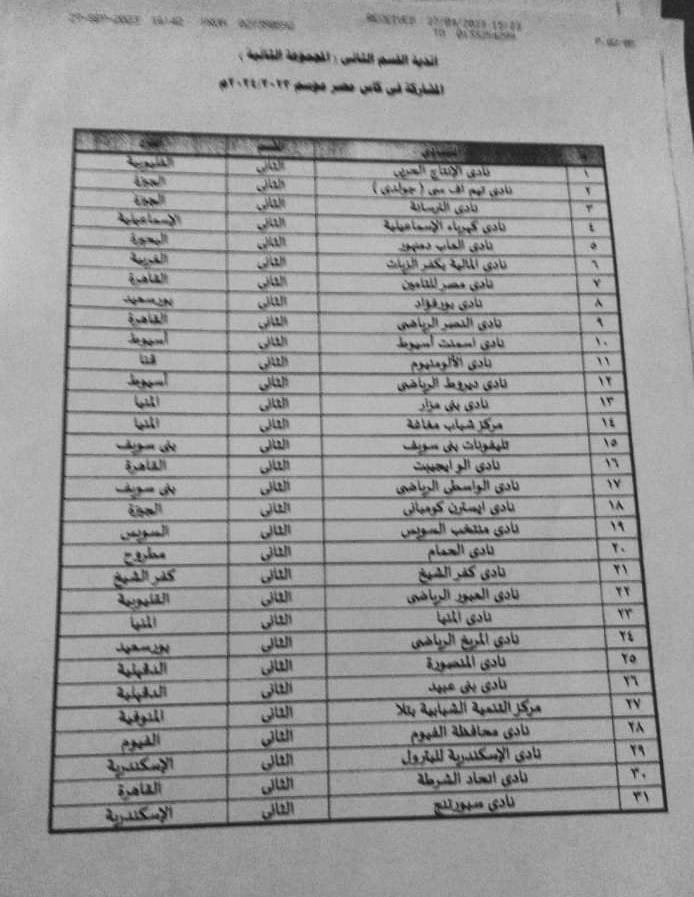 29-SEP-2023 16:42 FROM
RECEIVED 27/09/2023 15:23
TO
P.02/05
اندية القسم الثانى ( المجموعة الثانية )
المشاركة فى كاس مصر موسم ٢٠٢٤/٢٠٢٣م
م النادى القسم
١ نادى الإنتاج الحربى الثانى القليوبية
٢ نادى تيم اف سى ( جولدى ) الثانى الجيزة
٣ نادى الترسانة الثانى الجيزة
٤ نادى كهرباء الإسماعيلية الثانى الإسماعيلية
٥ نادى العاب دمنهور الثانى البحيرة
٦ نادى المالية بكفر الزيات الثانى الغربية
٧ نادى مصر للتامين الثانى القاهرة
٨ نادى بورفؤاد الثانى بورسعيد
٩ نادى النصر الرياضى الثانى القاهرة
١٠ نادى اسمنت أسيوط الثانى أسيوط
١١ نادى الألومنيوم الثانى قنا
١٢ نادى ديروط الرياضى الثانى أسيوط
١٣ نادى بنى مزار الثانى المنيا
١٤ مركز شباب مغاغة الثانى المنيا
١٥ تليفونات بنى سويف الثانى بنى سويف
١٦ نادى الو ايجيبت الثانى القاهرة
١٧ نادى الواسطى الرياضى الثانى بنى سويف
١٨ نادى ايسترن كومبانى الثانى الجيزة
١٩ نادى منتخب السويس الثانى السويس
٢٠ نادى الحمام الثانى مطروح
٢١ نادى كفر الشيخ الثانى كفر الشيخ
٢٢ نادى العبور الرياضى الثانى القليوبية
٢٣ نادى المنيا الثانى المنيا
٢٤ نادى المريخ الرياضى الثانى بورسعيد
٢٥ نادى المنصورة الثانى الدقهلية
٢٦ نادى بنى عبيد الثانى الدقهلية
٢٧ مركز التنمية الشبابية بتلا الثانى المنوفية
٢٨ نادى محافظة الفيوم الثانى الفيوم
٢٩ نادى الإسكندرية للبترول الثانى الإسكندرية
٣٠ نادى اتحاد الشرطة الثانى القاهرة
٣١ نادى سبورتنج الثانى الإسكندرية